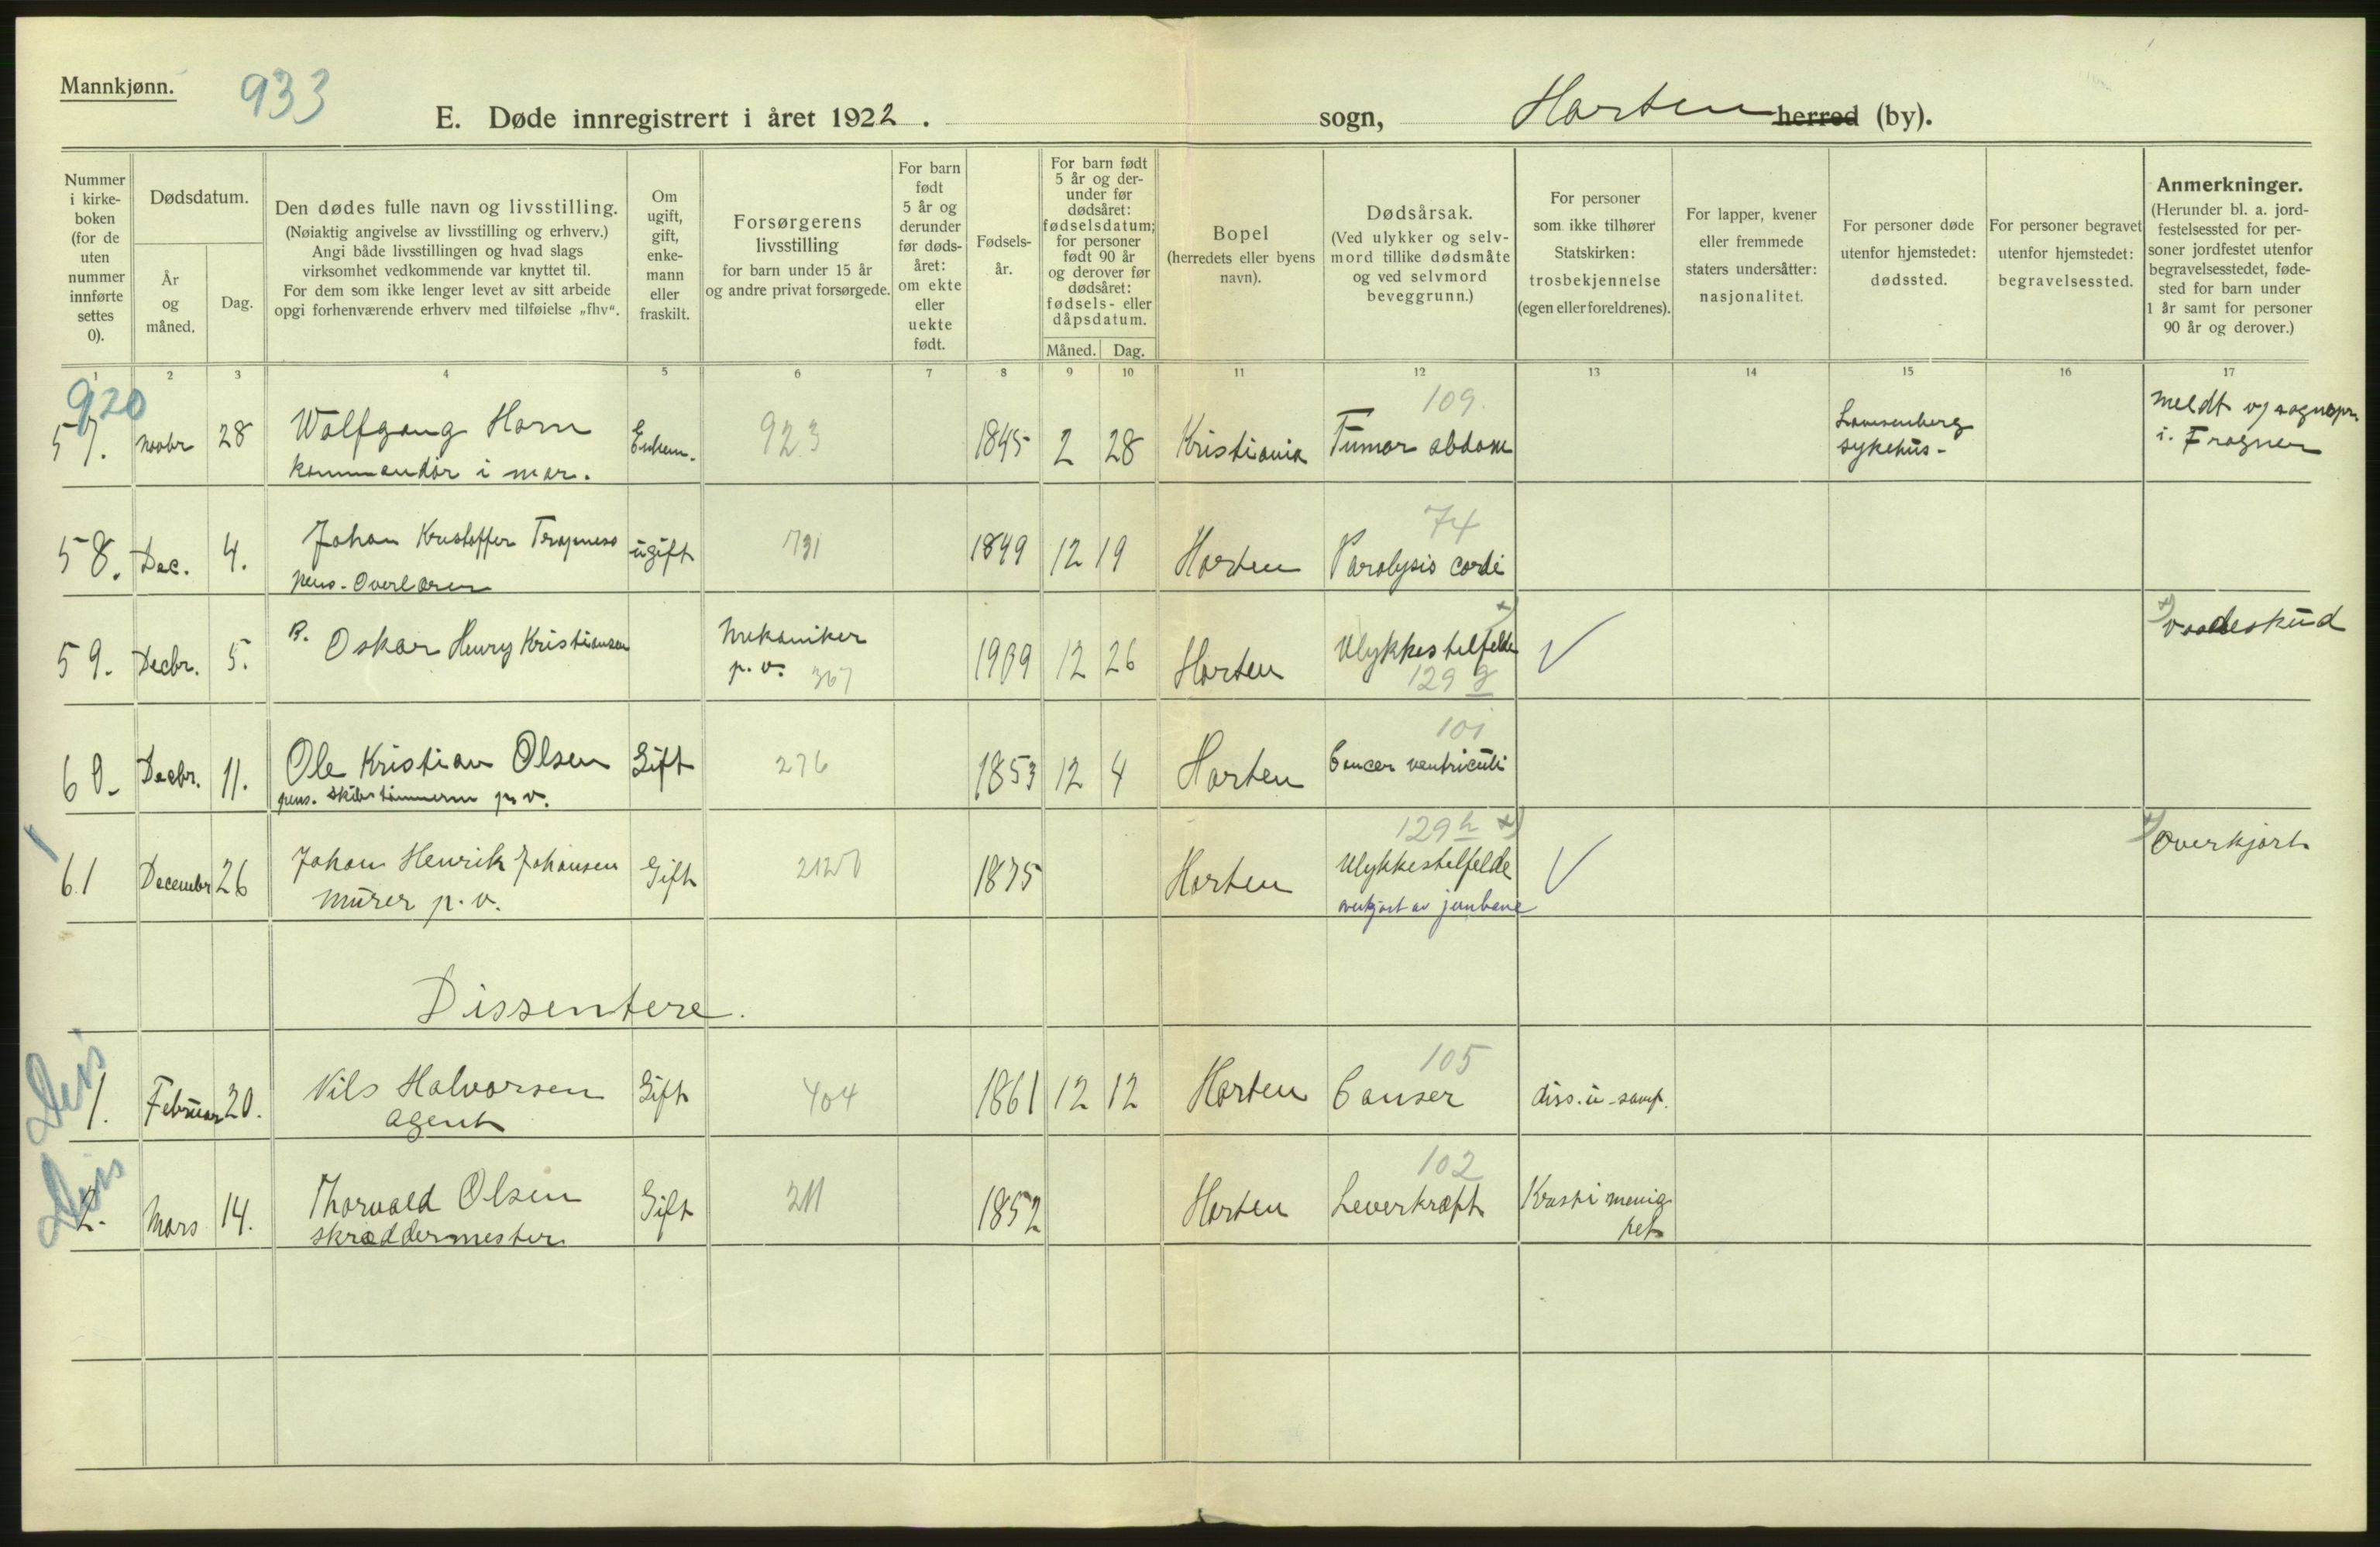 Mannkjønn.
933
E. Døde innregistrert i året 1922. sogn, Horten herred (by).
Nummer i kirke-boken (for de uten nummer innførte settes 0).
Dødsdatum.
År og måned.
Dag.
Den dødes fulle navn og livsstilling.
(Nøiaktig angivelse av livsstilling og erhverv.)
Angi både livsstillingen og hvad slags
virksomhet vedkommende var knyttet til.
For dem som ikke lenger levet av sitt arbeide
opgi forhenværende erhverv med tilføielse „fhv“.
Om ugift, gift, enke-mann eller fraskilt.
Forsørgerens livsstilling
for barn under 15 år
og andre privat forsørgede.
For barn født 5 år og derunder før døds-året: om ekte eller uekte født.
Fødsels-år.
For barn født 5 år og der-under før dødsåret: fødselsdatum; for personer født 90 år og derover før dødsåret: fødsels- eller dåpsdatum.
Måned. Dag.
Bopel
(herredets eller byens navn).
Dødsårsak.
(Ved ulykker og selv-mord tillike dødsmåte og ved selvmord beveggrunn.)
For personer som ikke tilhører Statskirken: trosbekjennelse (egen eller foreldrenes).
For lapper, kvener eller fremmede staters undersåtter: nasjonalitet.
For personer døde utenfor hjemstedet: dødssted.
For personer begravet utenfor hjemstedet: begravelsessted.
Anmerkninger.
(Herunder bl. a. jord-festelsessted for per-soner jordfestet utenfor begravelsesstedet, føde-sted for barn under 1 år samt for personer 90 år og derover.)
1 2 3 4 5 6 7 8 9 10 11 12 13 14 15 16 17
920
57. Novbr 28 Wolfgang Horn Enkem. 923 1845 2 28 Kristiania 109 Tumor abdom sykehus- meldt v/ sognepr.
kommandør i mar. i. Frogner
58. Dec. 4. Johan Kristoffer ugift 731 1849 12 19 Horten 74 Paralysis cordi
pens. Overlærer
59. Decbr. 5. Oskar Henry Kristiansen Mekaniker 1909 12 26 Horten Ulykkestilfelde x) x) Vaadeskud
p. v. 367 129 g
60. Decbr. 11. Ole Kristian Olsen Gift 276 1853 12 4 Horten 101 Cancer ventriculi
pens. skibstømmerm p. v.
61 December 26 Johan Henrik Johansen Gift 2120 1875 Horten 129 h x) Ulykkestilfelde x) Overkjørt
Murer p. v. overkjørt av jernbane
Dissentere.
Dis 1. Februar 20. Nils Halvorsen Gift 404 1861 12 12 Horten 105 Canser diss. u. samf.
agent
Dis 2. Mars 14. Thorvald Olsen Gift 211 1852 Horten 102 Leverkræft Kristi menig
skræddermester het